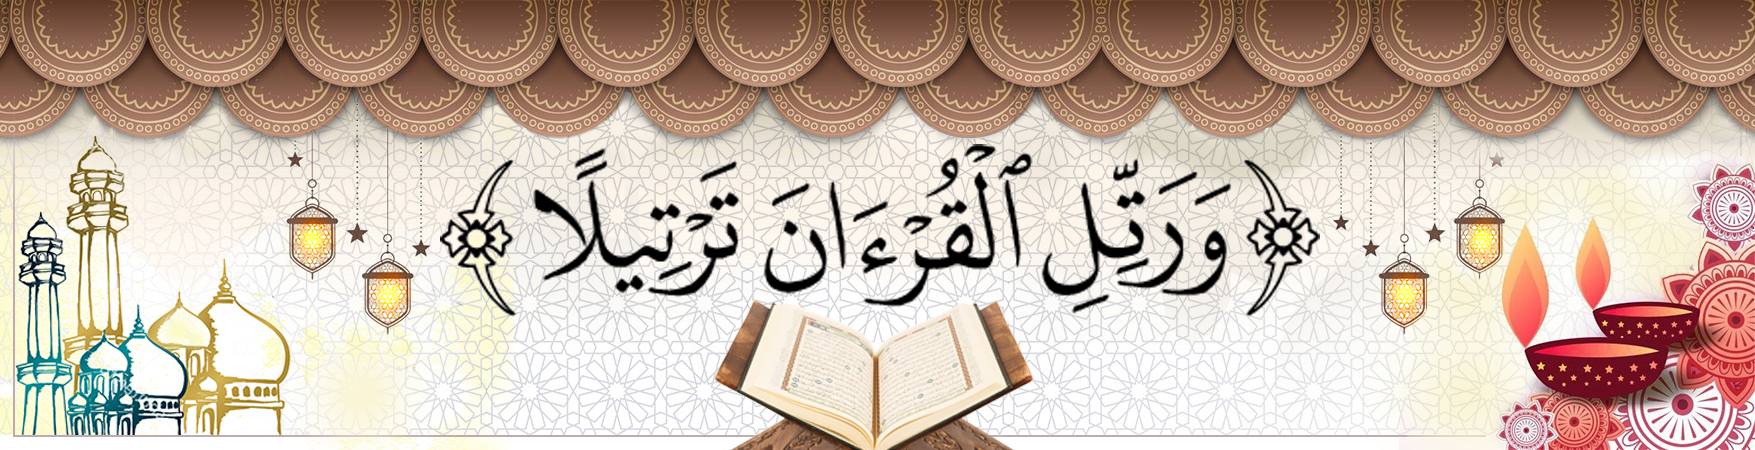 ﴿وَرَتِّلِ ٱلْقُرْءَانَ تَرْتِيلًا﴾